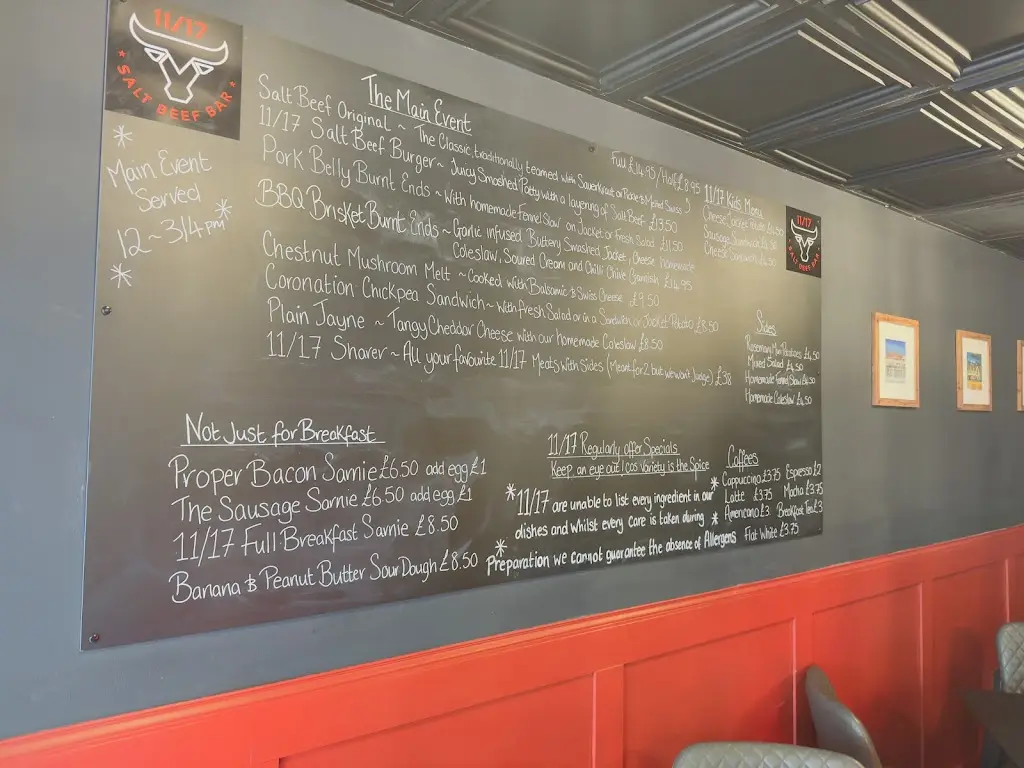 11/17
SALT BEEF BAR
Main Event
Served
12~3/4pm
The Main Event
Salt Beef Original ~ The Classic, traditionally teamed with Sauerkraut or Full £14.95/Half £8.95
11/17 Salt Beef Burger ~ Juicy Smashed Patty with a layering of Salt Beef £13.50
Pork Belly Burnt Ends ~ With homemade Fennel Slaw on Jacket or Fresh Salad £11.50
BBQ Brisket Burnt Ends ~ Garlic Infused Buttery Smashed Jacket, Cheese, homemade
Coleslaw, Soured Cream and Chilli Chive Garnish £14.95
Chestnut Mushroom Melt ~ Cooked with Balsamic & Swiss Cheese £9.50
Coronation Chickpea Sandwich ~ with Fresh Salad or in a Sandwich or Jacket Potato £8.50
Plain Jayne ~ Tangy Cheddar Cheese with our homemade Coleslaw £8.50
11/17 Sharer ~ All your favourite 11/17 Meats with Sides (Meant for 2 but we won't Judge) £38
11/17 Kids Menu
Sausage Sandwich £4.50
Cheese Sandwich £4.50
11/17
SALT BEEF BAR
Sides
Rosemary Potatoes £4.50
Mixed Salad £4.50
Homemade Fennel Slaw £4.50
Homemade Coleslaw £4.50
Not Just for Breakfast
Proper Bacon Sarnie £6.50 add egg £1
The Sausage Sarnie £6.50 add egg £1
11/17 Full Breakfast Sarnie £8.50
Banana & Peanut Butter SourDough £8.50
11/17 Regularly offer Specials
Keep an eye out! cos variety is the Spice
*11/17 are unable to list every ingredient in our *
dishes and whilst every care is taken during *
*Preparation we cannot guarantee the absence of Allergens
Coffees
Cappuccino £3.75 Espresso £2
Latte £3.75 Mocha £3.75
Americano £3 Breakfast Tea £3
Flat White £3.75